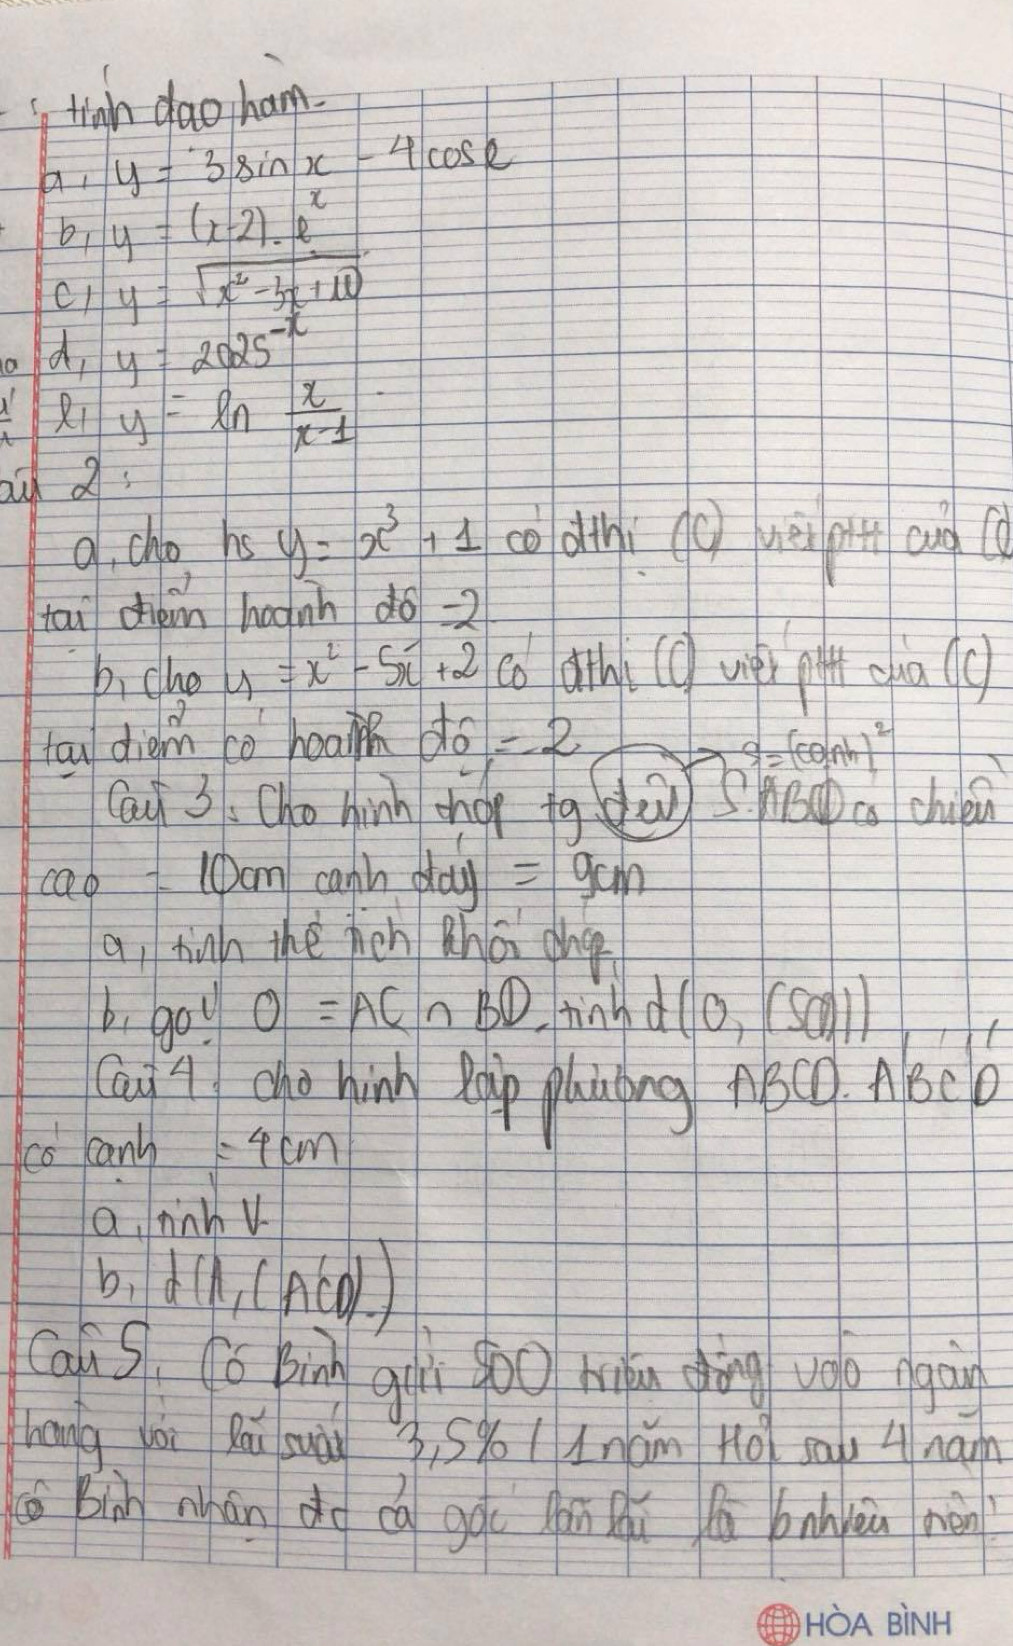 : tính đạo hàm.
a, y = 3 sin x - 4 cos x
b, y = (x-2). e^x
c, y = √(x² - 3x + 10)
d, y = 2025^-x
e, y = ln x/(x-1)
câu 2 :
a, cho hs y = x³ + 1 có đthị (C) viết pttt của (C)
tại điểm hoành độ -2
b, cho y = x² - 5x + 2 có đthị (C) viết ptt của (C)
tại điểm có hoành độ = 2
S = (cạnh)²
Câu 3. Cho hình chóp tg đều S.ABCD có chiều
cao = 10cm cạnh đáy = 9cm
a, tính thể tích khối chóp.
b, gọi O = AC ∩ BD. tính d(O, (SCD))
Câu 4. cho hình lập phương ABCD. A'B'C'D'
có cạnh = 4cm
a, tính V
b, d(A, (A'CD).)
Câu 5. Cô Bình gửi 500 triệu đồng vào ngân
hàng với lãi suất 3,5% / 1 năm Hỏi sau 4 năm
cô Bình nhận đc cả gốc lẫn lãi là bnhiêu tiền
HÒA BÌNH